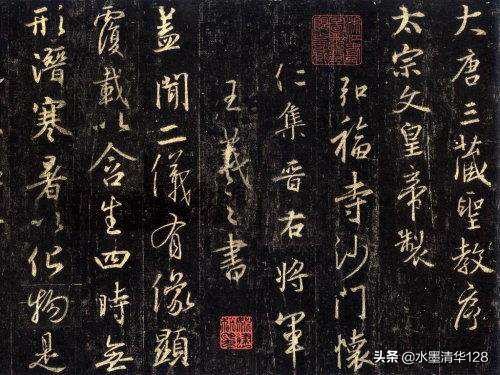 大唐三藏聖教序
太宗文皇帝製
弘福寺沙門懷
仁集晉右將軍
王羲之書
盖聞二儀有像顯
覆載以含生四時無
形潛寒暑以化物是
头条 @水墨清华128